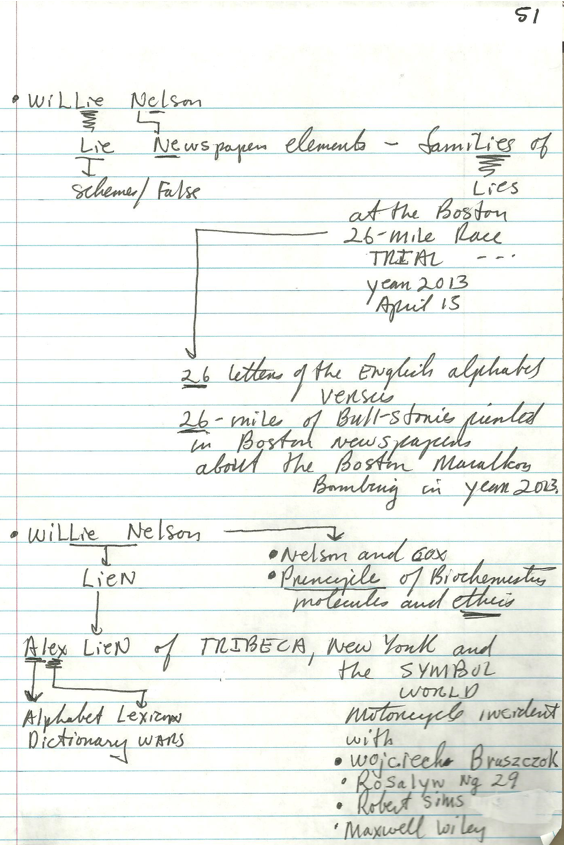 51
• WiLLie Nelson
Lie Newspapers elements - famiLies of
schemes/False Lies
at the Boston
26-mile Race
TRIAL ---
year 2013
April 15
26 letters of the English alphabet
versus
26-mile of Bull-Stories printed
in Boston newspapers
about the Boston Marathon
Bombing in year 2013.
• WiLLie Nelson
• Nelson and Cox
LieN
• Principle of Biochemistry
molecules and
Alex LieN of TRIBECA, New York and
the SYMBOL
WORLD
Alphabet Lexicon
Motorcycle incident
Dictionary WARS
with
• Wojciech Braszczok
• Rosalyn Ng 29
• Robert Sims
• Maxwell Wiley